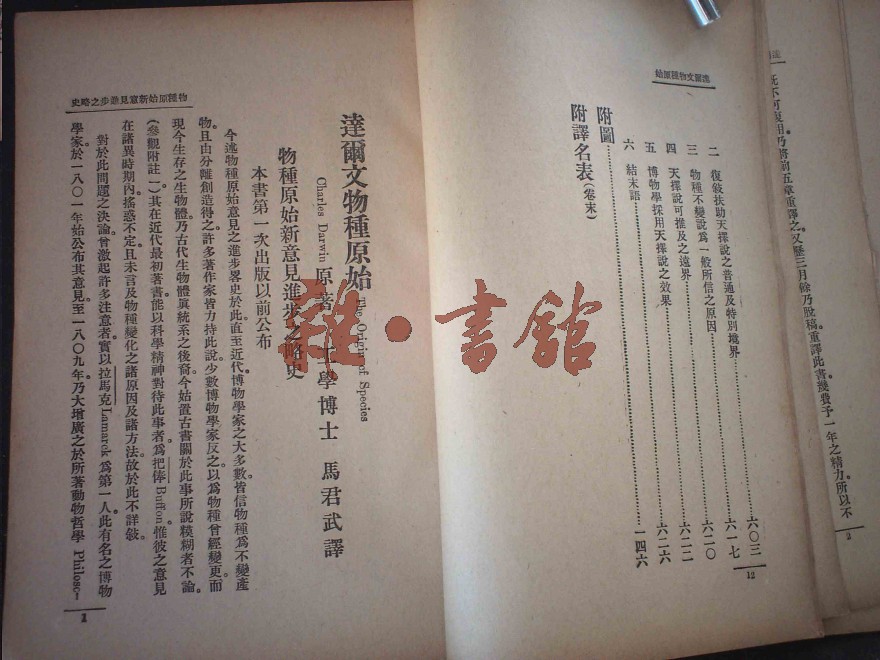 既不可復用。乃將前五章重譯之。又歷三月餘乃脫稿。重譯此書幾費予一年之精力。所以不
2
達爾文物種原始
二 復敍扶助天擇說之普通及特別境界……六〇三
三 物種不變說爲一般所信之原因……六一七
四 天擇說可推及之遠界……六二〇
五 博物學採用天擇說之效果……六二二
六 結末語……六二六
附圖……一四六
附譯名表(卷末)
12
物種原始新意見進步之略史
達爾文物種原始 The Origin of Species
Charles Darwin 原著 工學博士 馬君武譯
物種原始新意見進步之略史
本書第一次出版以前公布
今述物種原始意見之進步畧史於此。直至近代博物學家之大多數皆信物種爲不變產
物。且由分離創造得之。許多著作家皆力持此說。少數博物學家反之。以爲物種曾經變更。而
現今生存之生物體。乃古代生物體眞統系之後裔。今姑置古書關於此事所說糢糊者不論。
(參觀附註一)其在近代最初著書能以科學精神對待此事者。爲把俸 Buffon 惟彼之意見
在諸異時期內。搖惑不定。且未言及物種變化之諸原因及諸方法。故於此不詳敍。
對於此問題之決論。曾激起許多注意者。實以拉馬克 Lamarck 爲第一人。此有名之博物
學家於一八〇一年始公布其意見。至一八〇九年。乃大增廣之於所著動物哲學 Philoso-
1
雜·書館